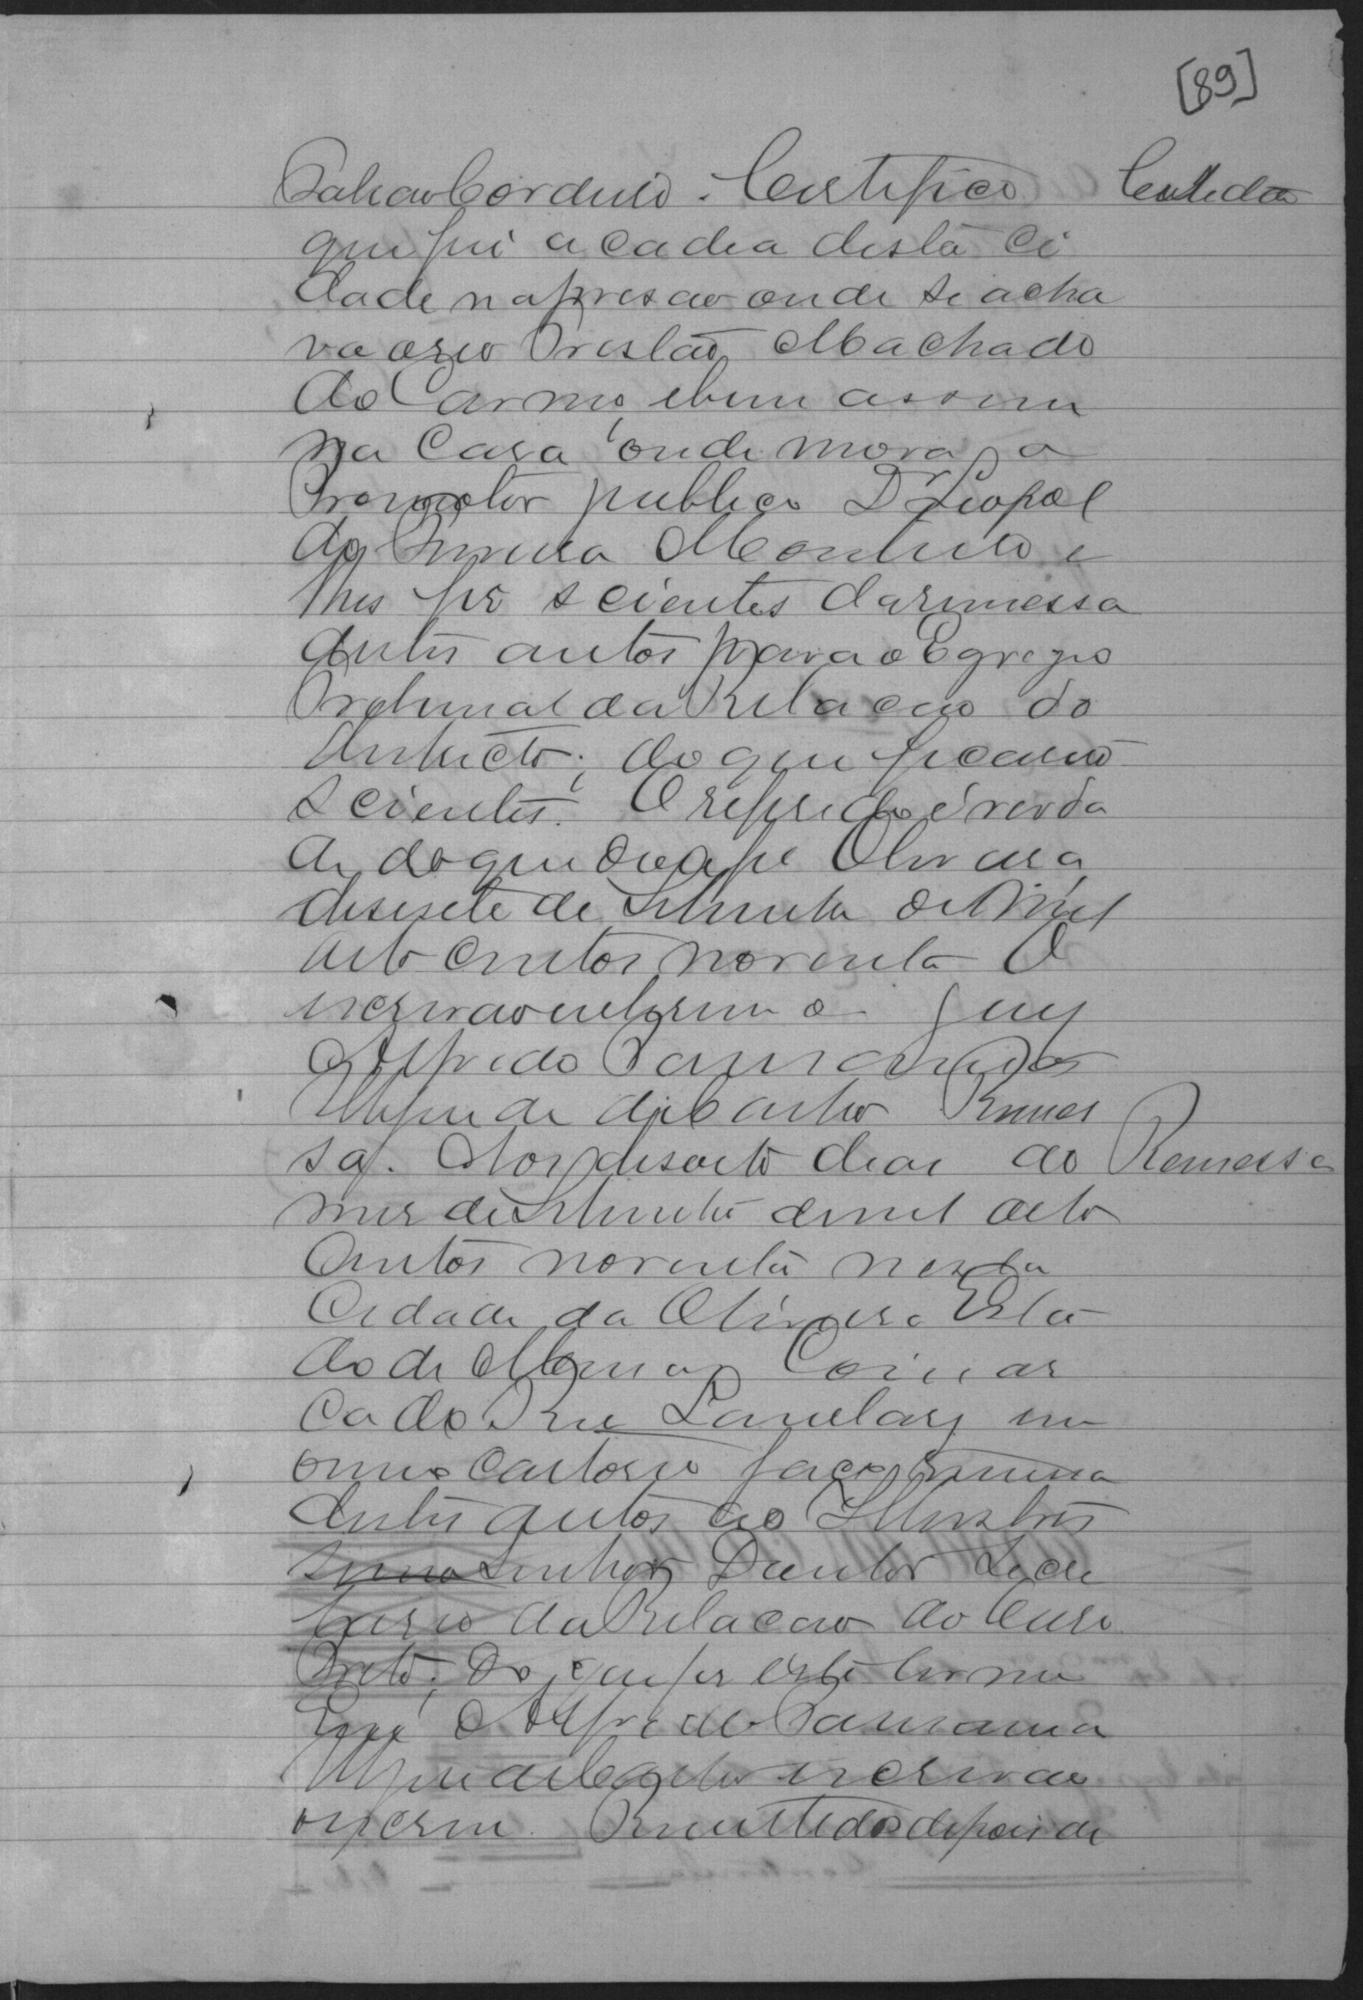 [89]
Certifico Certidão
que fui a cadea desta ci
dade na prisão onde se acha
va o reo Tristão Machado
do Carmo, e bem assim
na casa onde mora o
Promotor publico Dr Leopol
do Monteiro e
lhes fiz scientes da remessa
destes autos para o Egregio
Tribunal da Relacão do
districto; do que ficarão
scientes. O referido é verda
de do que dou fé Oliveira,
desesete de Setembro de mil
oito centos noventa O
escrivão interino
Alfredo
de Castro Remes
sa. Aos desoito dias do Remessa
mes de Setembro de mil oito
centos noventa nesta
Cidade da Oliveira Esta
do de Minas Comar
ca do Rio Lambary em
o meu cartorio faço remessa
destes autos ao Illustris
simo Senhor Doutor Secre
tario da Relacão do Ouro
Preto; do que fiz este termo
Eu Alfredo
escrivão
o escrevi. Remettidos depois de